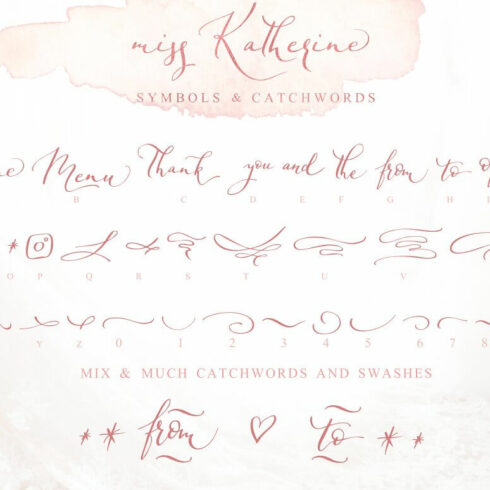 miss Katherine
SYMBOLS & CATCHWORDS
Menu Thank you and the from to
B C D E F G H
O P Q R S T U V
Y Z 0 1 2 3 4 5 6 7 8
MIX & MUCH CATCHWORDS AND SWASHES
from to